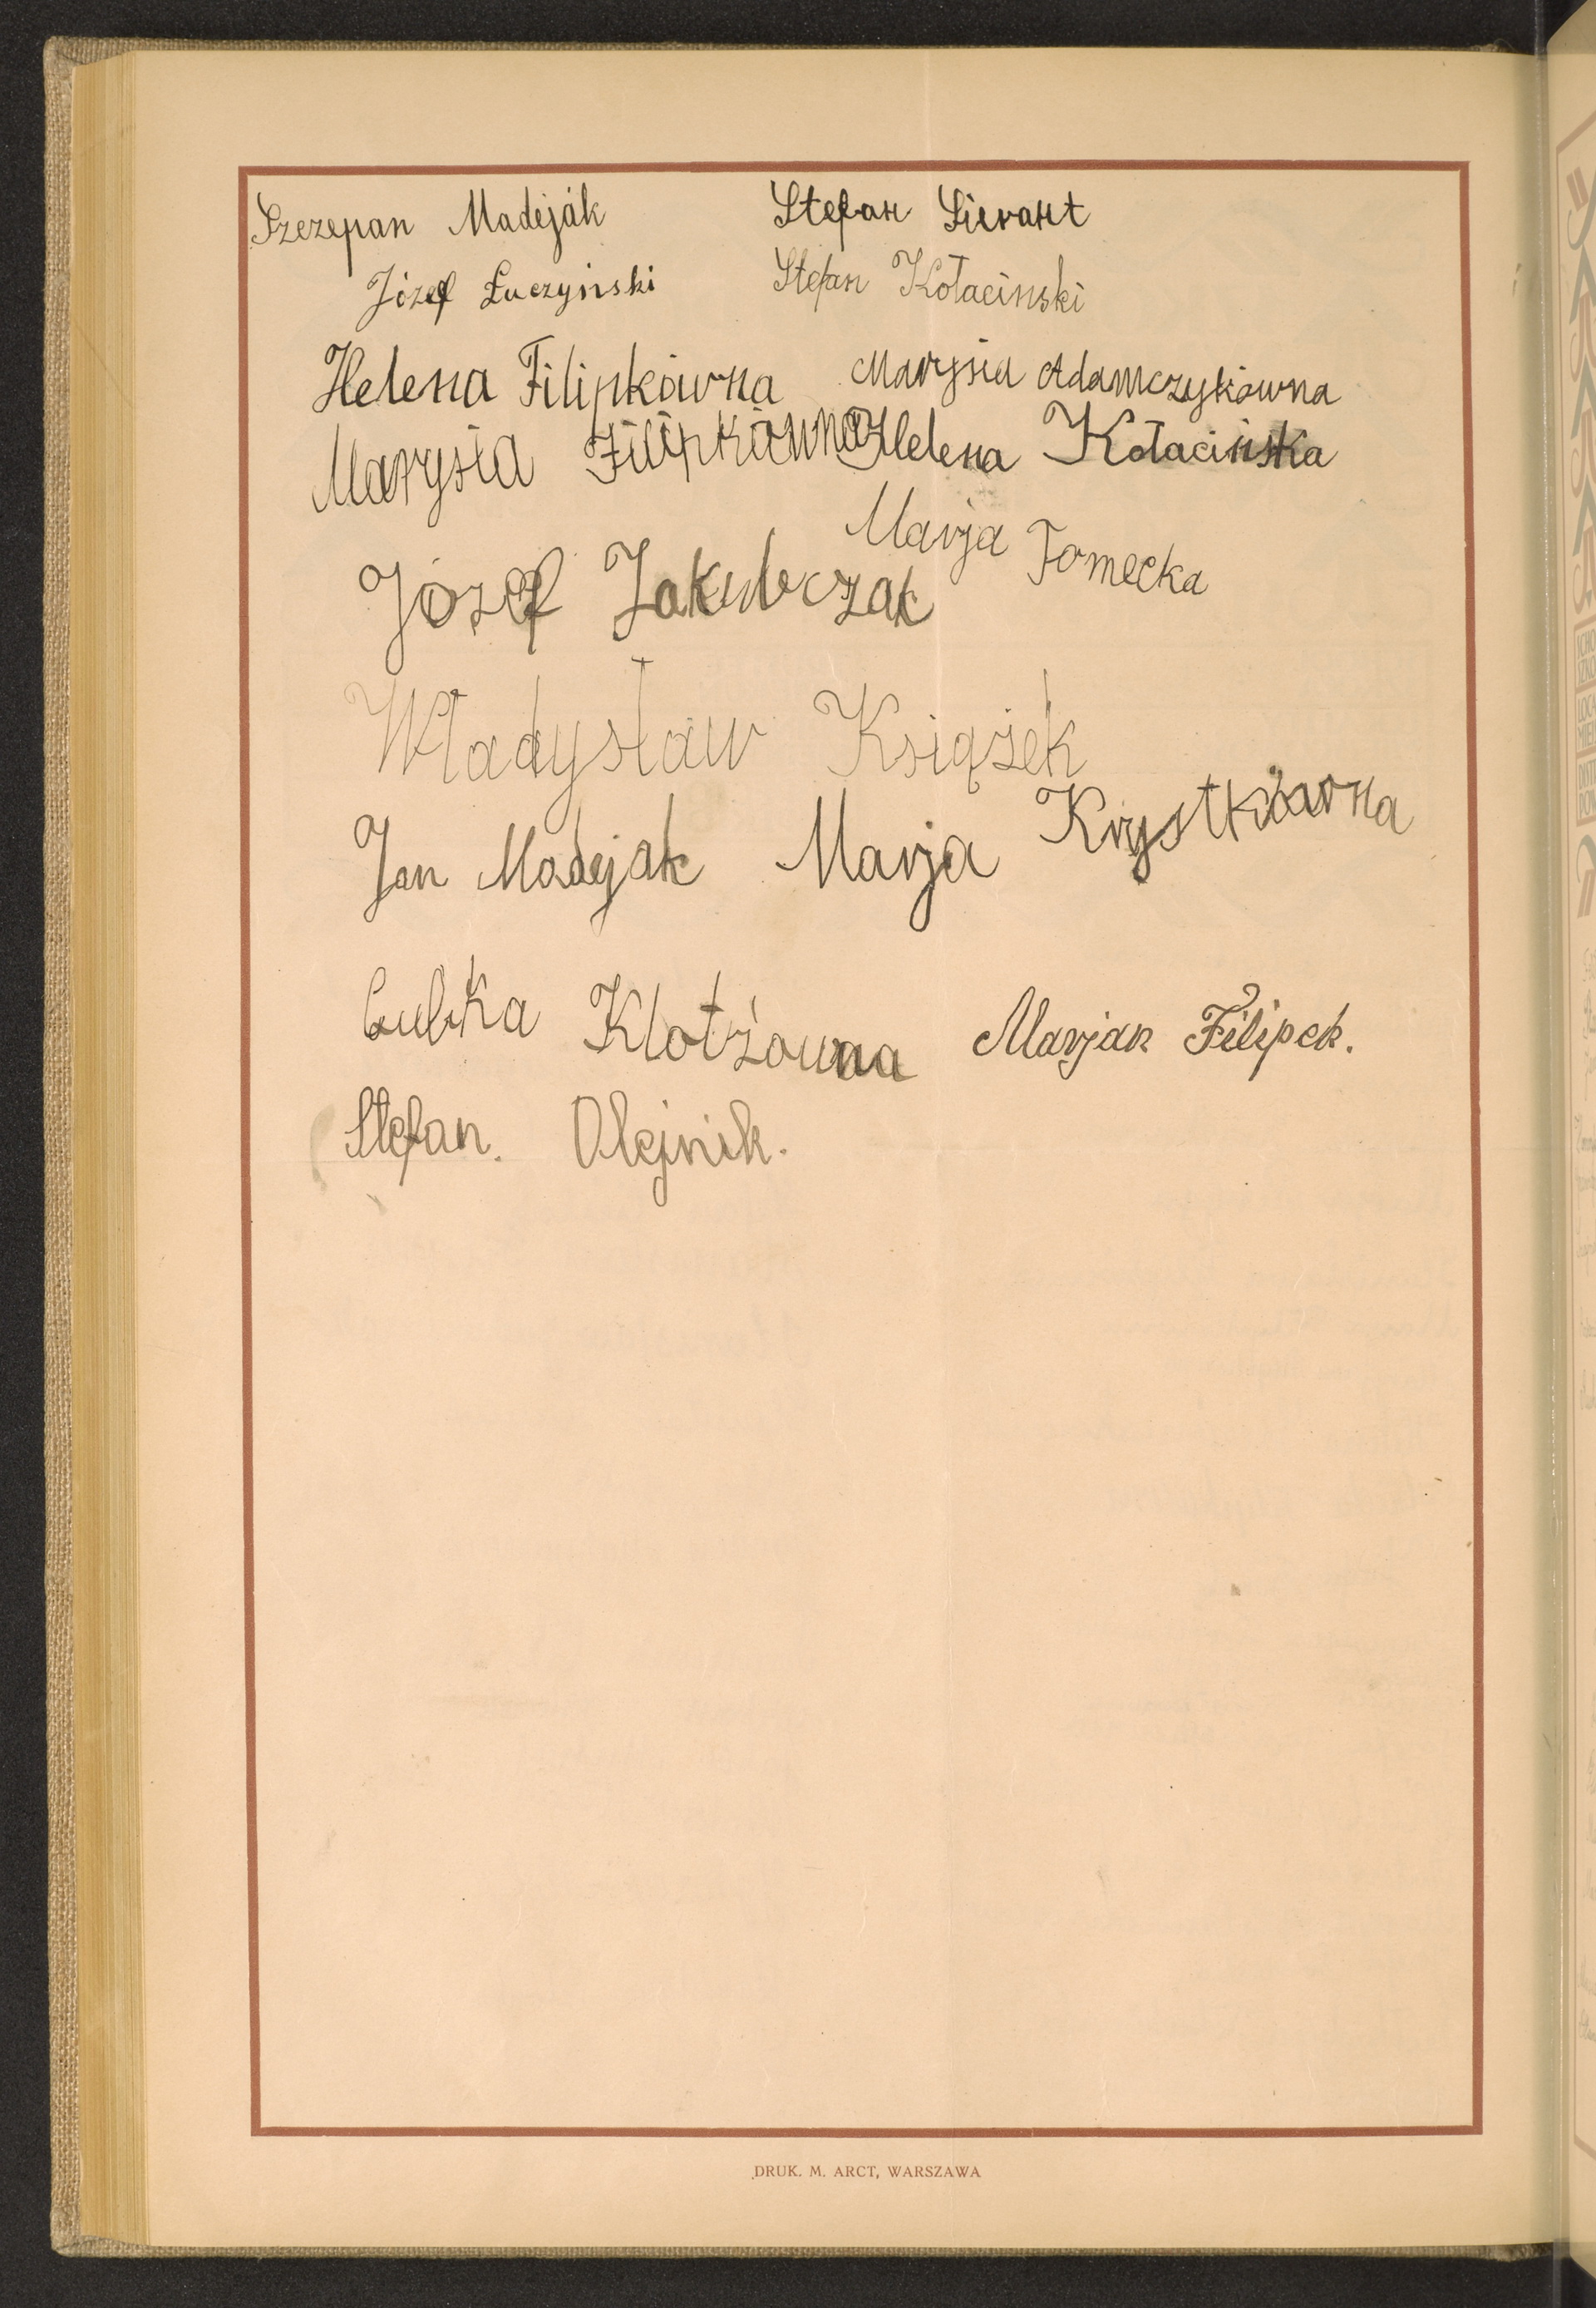 Szczepan Madejak Stefan Sierant
Józef Łuczyński Stefan Kołacinski
Helena Filipkówna Marysia Adamczykówna
Marysia Filipkówna Helena Kołacińska
Marja Tomecka
Józef Jakubczak
Władysław Książek
Jan Madejak Marja Krystkówna
Klotzówna Marjan Filipek.
Stefan. Olejnik.
DRUK. M. ARCT, WARSZAWA